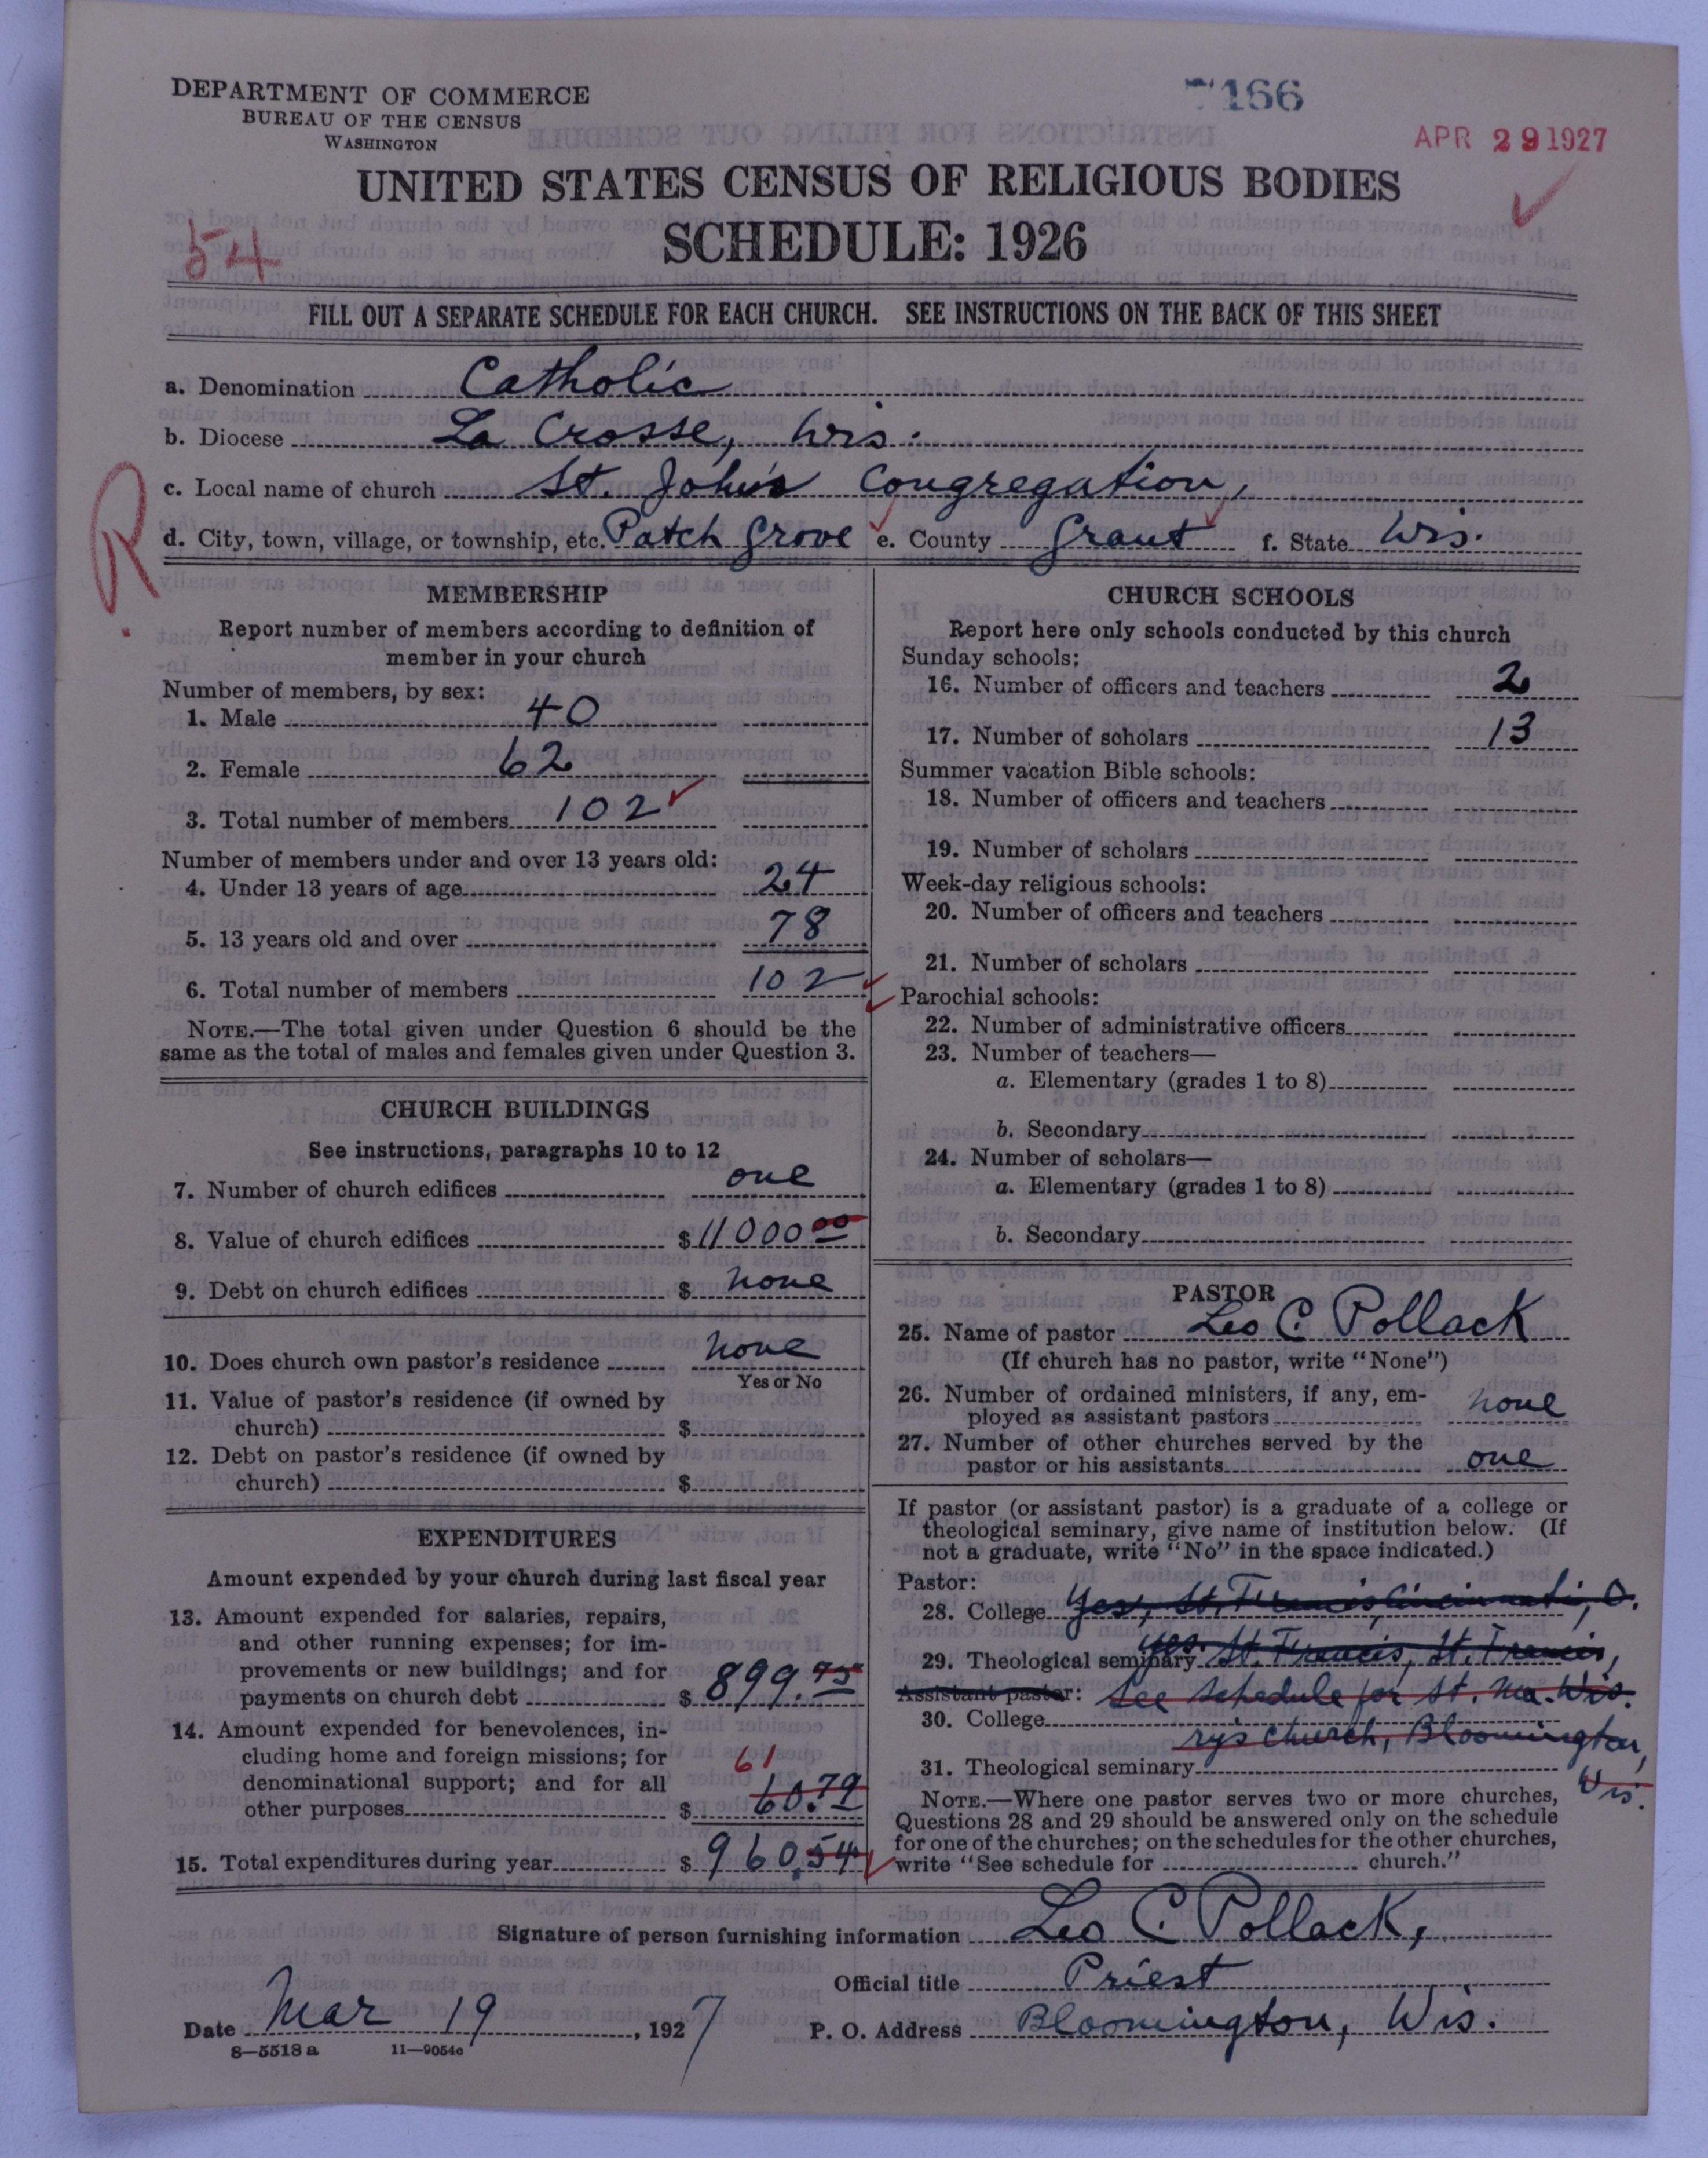 DEPARTMENT OF COMMERCE
BUREAU OF THE CENSUS
WASHINGTON
7166
APR 29 1927
UNITED STATES CENSUS OF RELIGIOUS BODIES
SCHEDULE: 1926
54
FILL OUT A SEPARATE SCHEDULE FOR EACH CHURCH. SEE INSTRUCTIONS ON THE BACK OF THIS SHEET
a. Denomination Catholic
b. Diocese La Crosse, Wis.
c. Local name of church St. John's Congregation,
R.
d. City, town, village, or township, etc. Patch Grove e. County Grant f. State Wis.
MEMBERSHIP
Report number of members according to definition of
member in your church
Number of members, by sex:
1. Male 40
2. Female 62
3. Total number of members 102
Number of members under and over 13 years old:
4. Under 13 years of age 24
5. 13 years old and over 78
6. Total number of members 102
NOTE.—The total given under Question 6 should be the
same as the total of males and females given under Question 3.
CHURCH BUILDINGS
See instructions, paragraphs 10 to 12
7. Number of church edifices one
8. Value of church edifices $ 11000 00
9. Debt on church edifices $ none
10. Does church own pastor's residence none
Yes or No
11. Value of pastor's residence (if owned by
church) $
12. Debt on pastor's residence (if owned by
church) $
EXPENDITURES
Amount expended by your church during last fiscal year
13. Amount expended for salaries, repairs,
and other running expenses; for im-
provements or new buildings; and for
payments on church debt $ 899.75
14. Amount expended for benevolences, in-
cluding home and foreign missions; for
61
denominational support; and for all
other purposes $ 60.79
15. Total expenditures during year $ 960.54
CHURCH SCHOOLS
Report here only schools conducted by this church
Sunday schools:
16. Number of officers and teachers 2
17. Number of scholars 13
Summer vacation Bible schools:
18. Number of officers and teachers
19. Number of scholars
Week-day religious schools:
20. Number of officers and teachers
21. Number of scholars
Parochial schools:
22. Number of administrative officers
23. Number of teachers—
a. Elementary (grades 1 to 8)
b. Secondary
24. Number of scholars—
a. Elementary (grades 1 to 8)
b. Secondary
PASTOR
25. Name of pastor Leo C. Pollack
(If church has no pastor, write "None")
26. Number of ordained ministers, if any, em-
ployed as assistant pastors none
27. Number of other churches served by the
pastor or his assistants one
If pastor (or assistant pastor) is a graduate of a college or
theological seminary, give name of institution below. (If
not a graduate, write "No" in the space indicated.)
Pastor:
28. College Yes, St. Francis, Cincinnati, O.
29. Theological seminary yes. St. Francis, St. Francis,
Assistant pastor: See schedule for St. Ma. Wis.
30. College
ry's Church, Bloomington,
31. Theological seminary
Wis.
NOTE.—Where one pastor serves two or more churches,
Questions 28 and 29 should be answered only on the schedule
for one of the churches; on the schedules for the other churches,
write "See schedule for church."
Signature of person furnishing information Leo C. Pollack,
Official title Priest
Date Mar 19, 1927 P. O. Address Bloomington, Wis.
8—5518 a 11—9054c